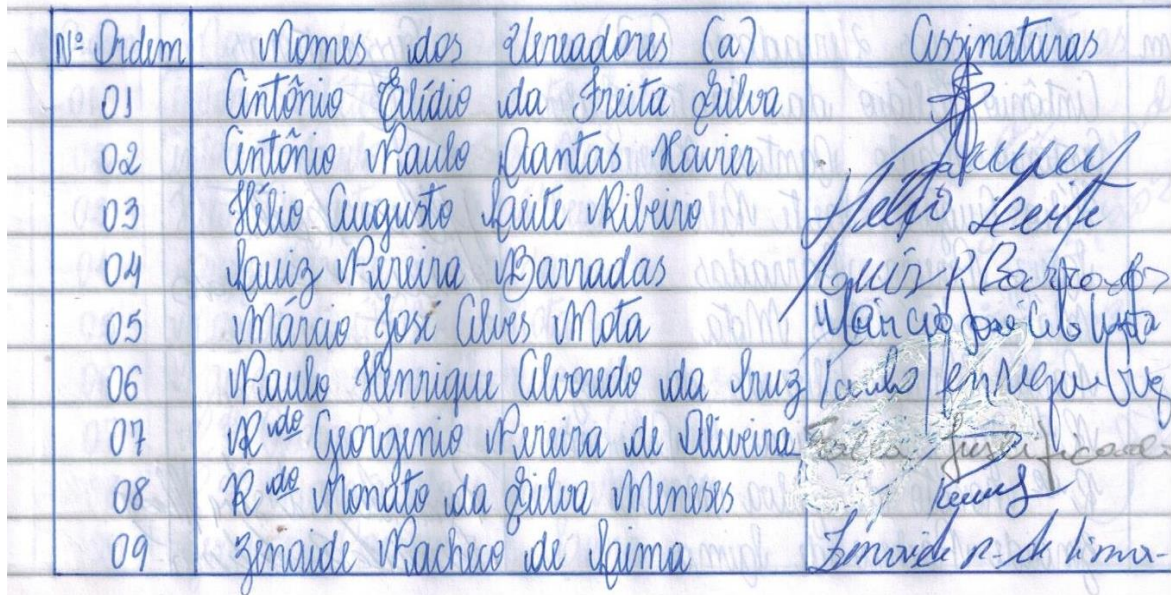 Nº Ordem Nomes dos Vereadores (a) Assinaturas
01 Antônio Elídio da Freita Silva
02 Antônio Paulo Dantas Xavier
03 Hélio Augusto Leite Ribeiro Helio Leite
04 Luiz Pereira Barradas Luis P. Barradas
05 Márcio José Alves Mota Márcio José Alves Mota
06 Paulo Henrique Alvoredo da Cruz Paulo Henrique Cruz
07 Rdo Georgenio Pereira de Oliveira Falta Justificada
08 Rdo Nonato da Silva Meneses
09 Zenaide Pacheco de Laima Zenaide P. de Lima